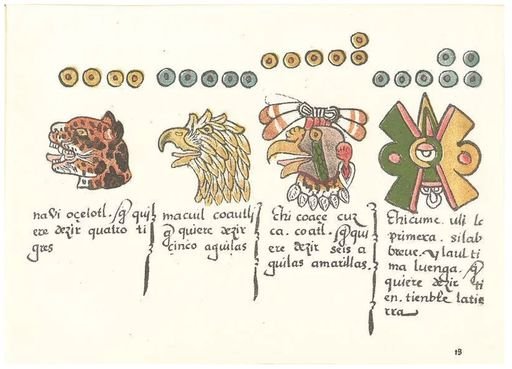 naVi oçelotl. q̃ qui
ere dezir quatro ti
gres
macuil coautli
q̃ quiere dezir
cinco aguilas
chi coaçe cuz
ca. coatl. q̃ qui
ere dezir seis a
guilas amarillas.
Chicume. uli la
primera. silab
breue. y laulti
ma luenga. q̃
quiere dezir ti
en. tienble latie
rra
19